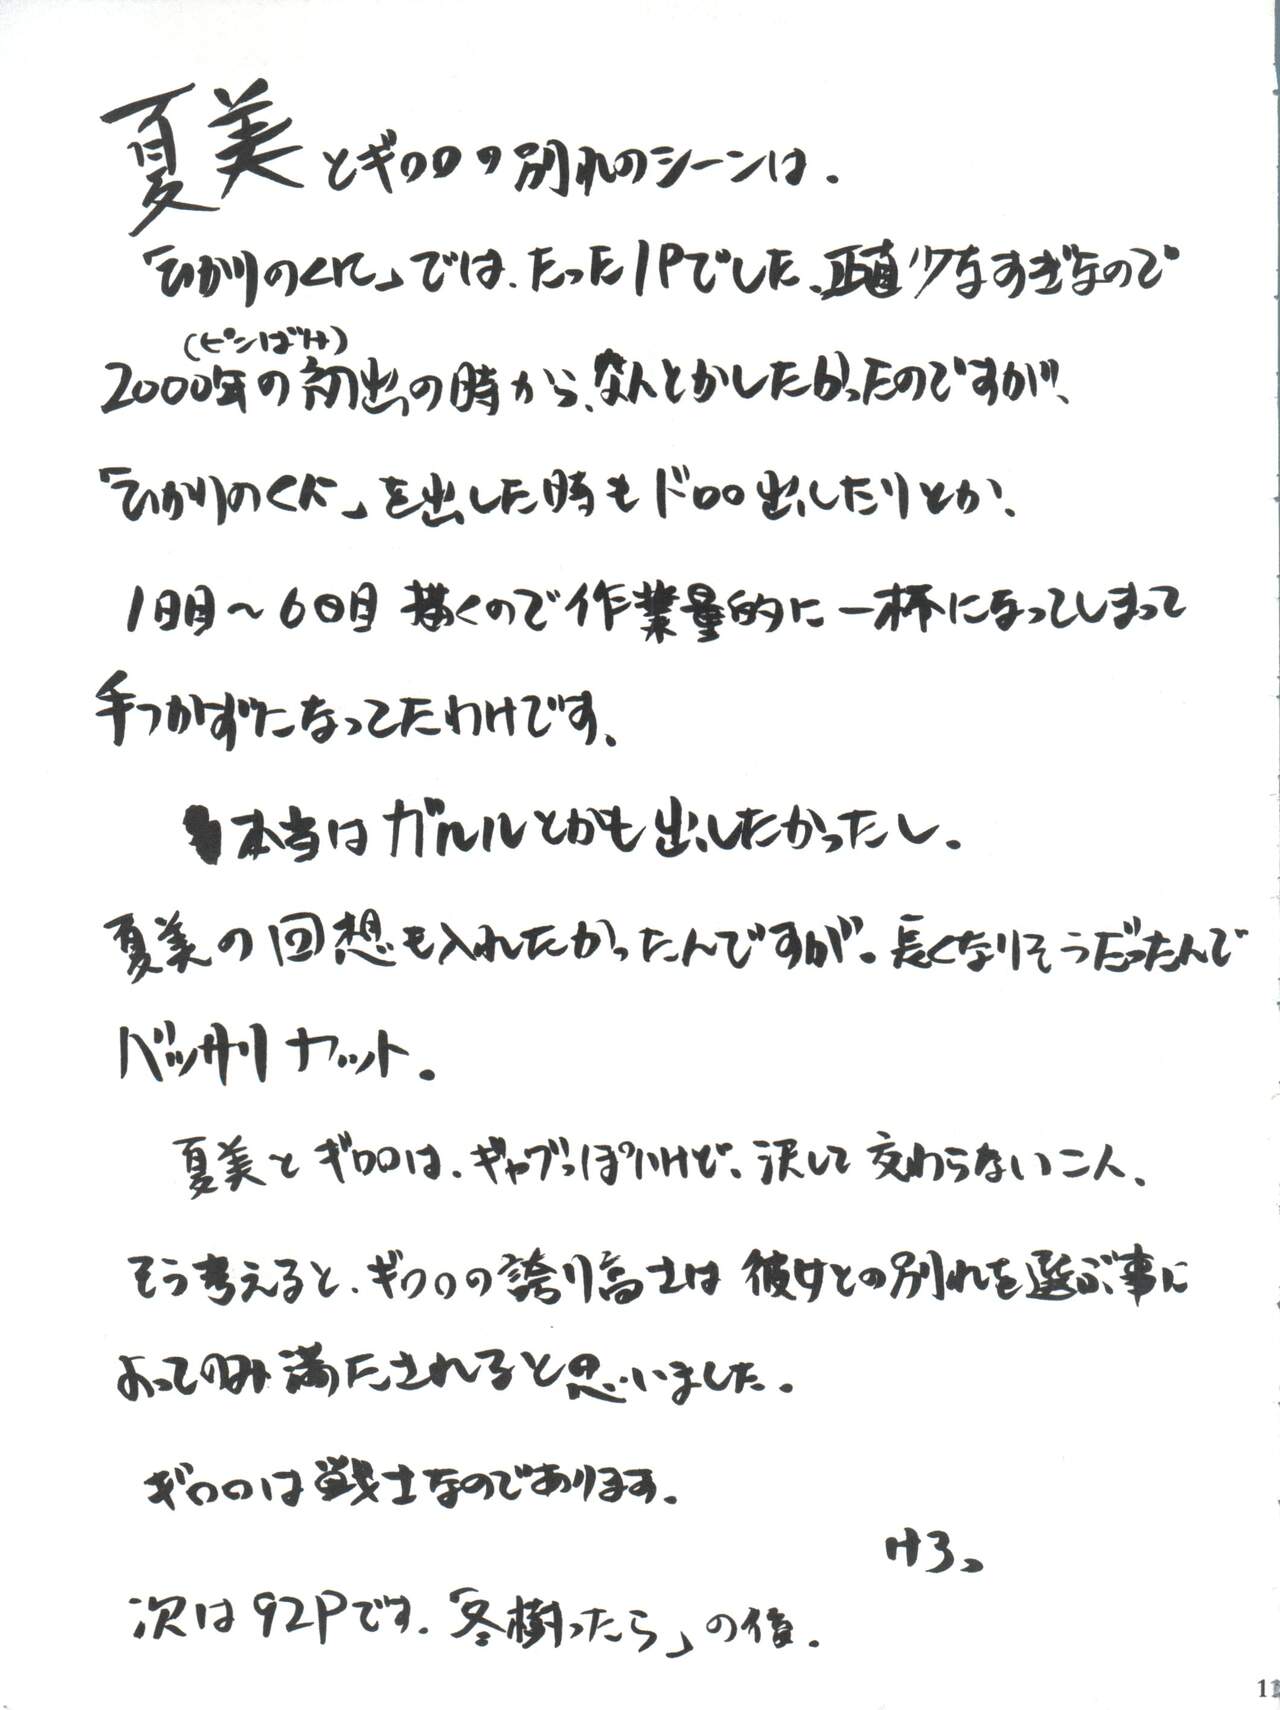 夏美とギロロの別れのシーンは.
「ひかりのくに」では、たった1Pでした、正直少なすぎなので
(ピンばけ)
2000年の初出の時から、なんとかしたかったのですが、
「ひかりのくに」を出した時もドロロ出したりとか、
1日目〜6日目 描くので作業量的に一杯になってしまって
手つかずになってたわけです、
本当はガルルとかも出したかったし.
夏美の回想も入れたかったんですが.長くなりそうだったんで
バッサリカット.
夏美とギロロは、ギャブっぽいけど、決して交わらない二人、
そう考えると、ギロロの誇り高士は彼女との別れを選ぶ事に
よってのみ満たされると思いました.
ギロロは戦士なのであります.
けろっ
次は92Pです.「冬樹ったら」の後.
11